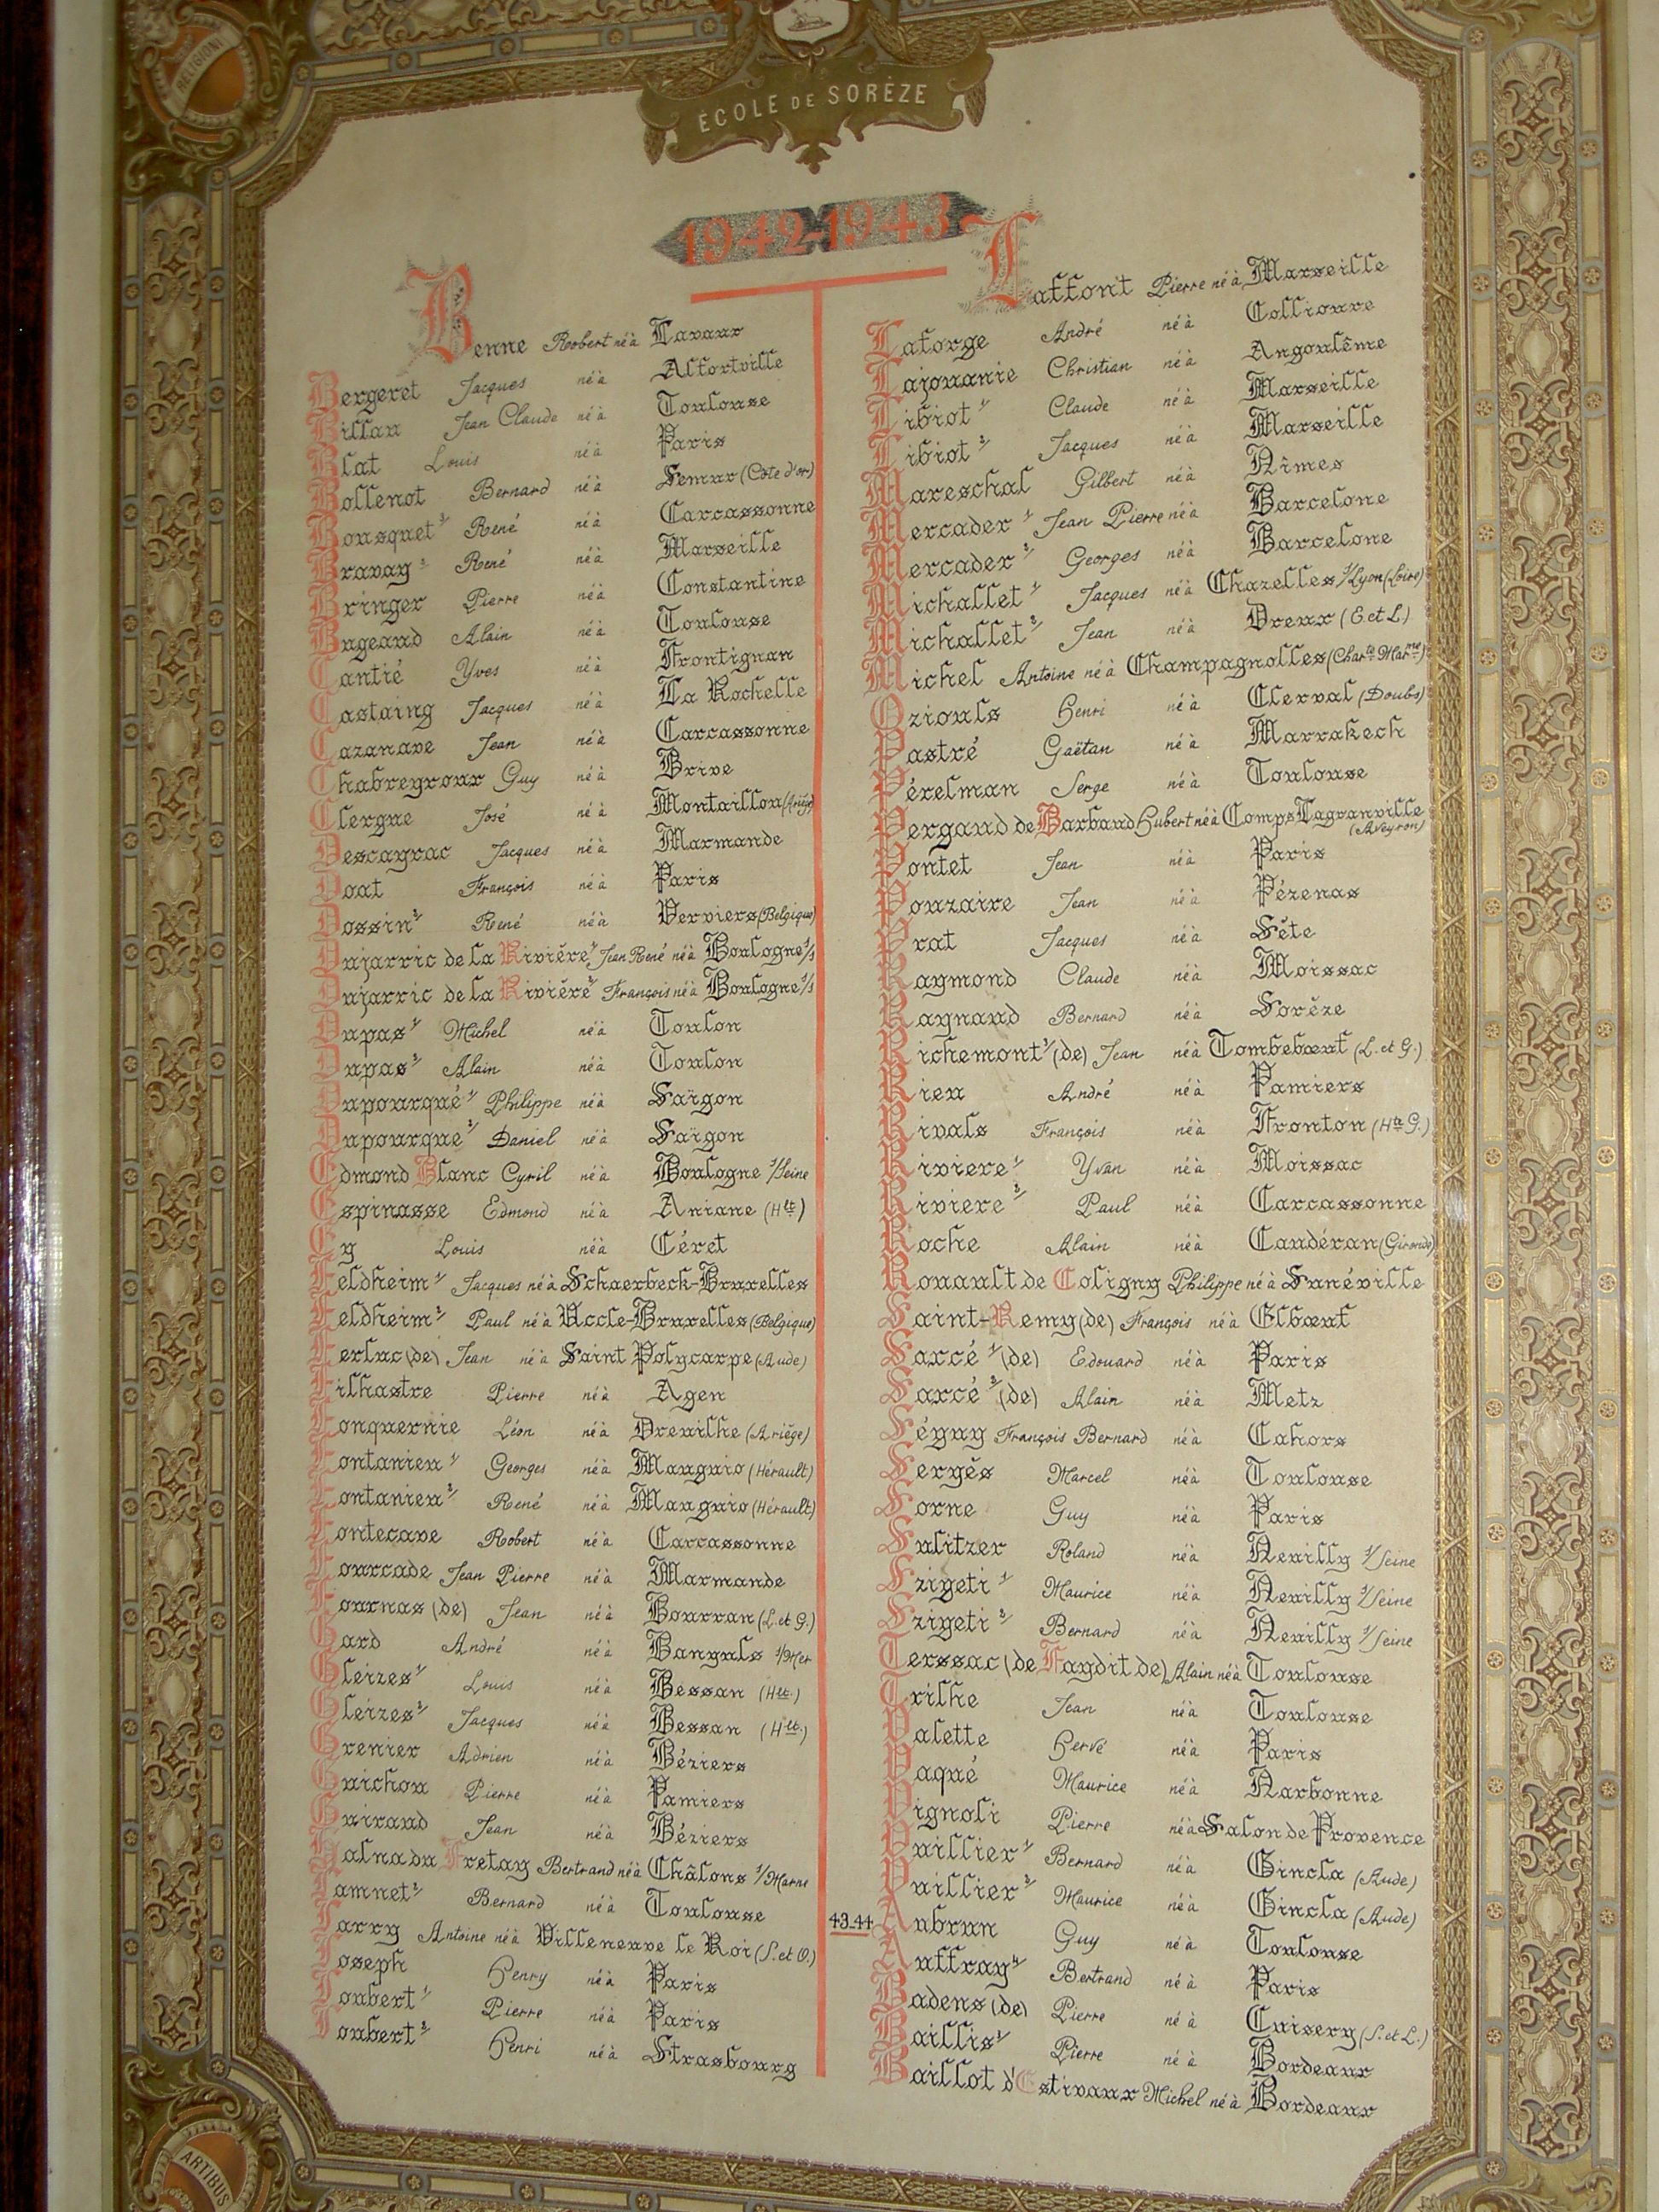 RELIGIONI
ÉCOLE DE SORÈZE
1942-1943
Benne Robert né à Lavaur
Bergeret Jacques né à Alfortville
Billau Jean Claude né à Toulouse
Blat Louis né à Paris
Bollenot Bernard né à Semur (Côte d'or)
Bousquet 2/ René né à Carcassonne
Bravay 2 René né à Marseille
Bringer Pierre né à Constantine
Bugeaud Alain né à Toulouse
Cantié Yves né à Frontignan
Castaing Jacques né à La Rochelle
Cazanave Jean né à Carcassonne
Chabreyroux Guy né à Brive
Clergue José né à Montaillou (Ariège)
Descayrac Jacques né à Marmande
Doat François né à Paris
Dossin 2/ René né à Verviers (Belgique)
Dujarric de la Rivière 1/ Jean René né à Boulogne s/s
Dujarric de la Rivière 2/ François né à Boulogne s/s
Dupas 1/ Michel né à Toulon
Dupas 2/ Alain né à Toulon
Dupourqué 1/ Philippe né à Saïgon
Dupourqué 2/ Daniel né à Saïgon
Edmond Blanc Cyril né à Boulogne s/Seine
Espinasse Edmond né à Aniane (Hlt)
Ey Louis né à Céret
Feldheim 1/ Jacques né à Schaerbeck-Bruxelles
Feldheim 2/ Paul né à Uccle-Bruxelles (Belgique)
Ferluc (de) Jean né à Saint Polycarpe (Aude)
Filhastre Pierre né à Agen
Fonquernie Léon né à Dreuilhe (Ariège)
Fontanieu 1/ Georges né à Mauguio (Hérault)
Fontanieu 2/ René né à Mauguio (Hérault)
Fontecave Robert né à Carcassonne
Fourcade Jean Pierre né à Marmande
Fournas (de) Jean né à Bourran (L. et G.)
Gard André né à Banyuls s/Mer
Gleizes 1/ Louis né à Bessan (Hlt.)
Gleizes 2/ Jacques né à Bessan (Hlt.)
Grenier Adrien né à Béziers
Guichou Pierre né à Pamiers
Guiraud Jean né à Béziers
Halna du Fretay Bertrand né à Châlons s/Marne
Hamnet 2/ Bernard né à Toulouse
Harry Antoine né à Villeneuve le Roi (S. et O.)
Joseph Henry né à Paris
Joubert 1/ Pierre né à Paris
Joubert 2/ Henri né à Strasbourg
Laffont Pierre né à Marseille
Laforge André né à Collioure
Lajouanie Christian né à Angoulême
Libiot 1/ Claude né à Marseille
Libiot 2/ Jacques né à Marseille
Mareschal Gilbert né à Nîmes
Mercader 1 Jean Pierre né à Barcelone
Mercader 2/ Georges né à Barcelone
Michallet 1/ Jacques né à Chazelles s/Lyon (Loire)
Michallet 2/ Jean né à Dreux (E et L)
Michel Antoine né à Champagnolles (Charte Marme)
Oziouls Henri né à Clerval (Doubs)
Pastré Gaëtan né à Marrakech
Pérelman Serge né à Toulouse
Pergaud de Barbaud Hubert né à Comps Lagranville (Aveyron)
Pontet Jean né à Paris
Pouzaire Jean né à Pézenas
Prat Jacques né à Sête
Raymond Claude né à Moissac
Raynaud Bernard né à Sorèze
Richemont 1/ (de) Jean né à Tombebœuf (L. et G.)
Rieu André né à Pamiers
Rivals François né à Fronton (Hte G.)
Riviere 1/ Yvan né à Moissac
Riviere 2/ Paul né à Carcassonne
Roche Alain né à Caudéran (Gironde)
Rouault de Coligny Philippe né à Sunéville
Saint-Remy (de) François né à Elbœuf
Sarcé 1/ (de) Edouard né à Paris
Sarcé 2/ (de) Alain né à Metz
Séguy François Bernard né à Cahors
Sergés Marcel né à Toulouse
Sorne Guy né à Paris
Sulitzer Roland né à Neuilly s/Seine
Szigeti 1 Maurice né à Neuilly s/Seine
Szigeti 2/ Bernard né à Neuilly s/Seine
Terssac (de Faydit de) Alain né à Toulouse
Trilhe Jean né à Toulouse
Valette Hervé né à Paris
Vaqué Maurice né à Narbonne
Vignoli Pierre né à Salon de Provence
Vuillier 1 Bernard né à Gincla (Aude)
Vuillier 2/ Maurice né à Gincla (Aude)
43-44 Aubrun Guy né à Toulouse
Auffray 4 Bertrand né à Paris
Badens (de) Pierre né à Cuisery (S. et L.)
Baillis 2/ Pierre né à Bordeaux
Baillot d'Estivaux Michel né à Bordeaux
ARTIBUS